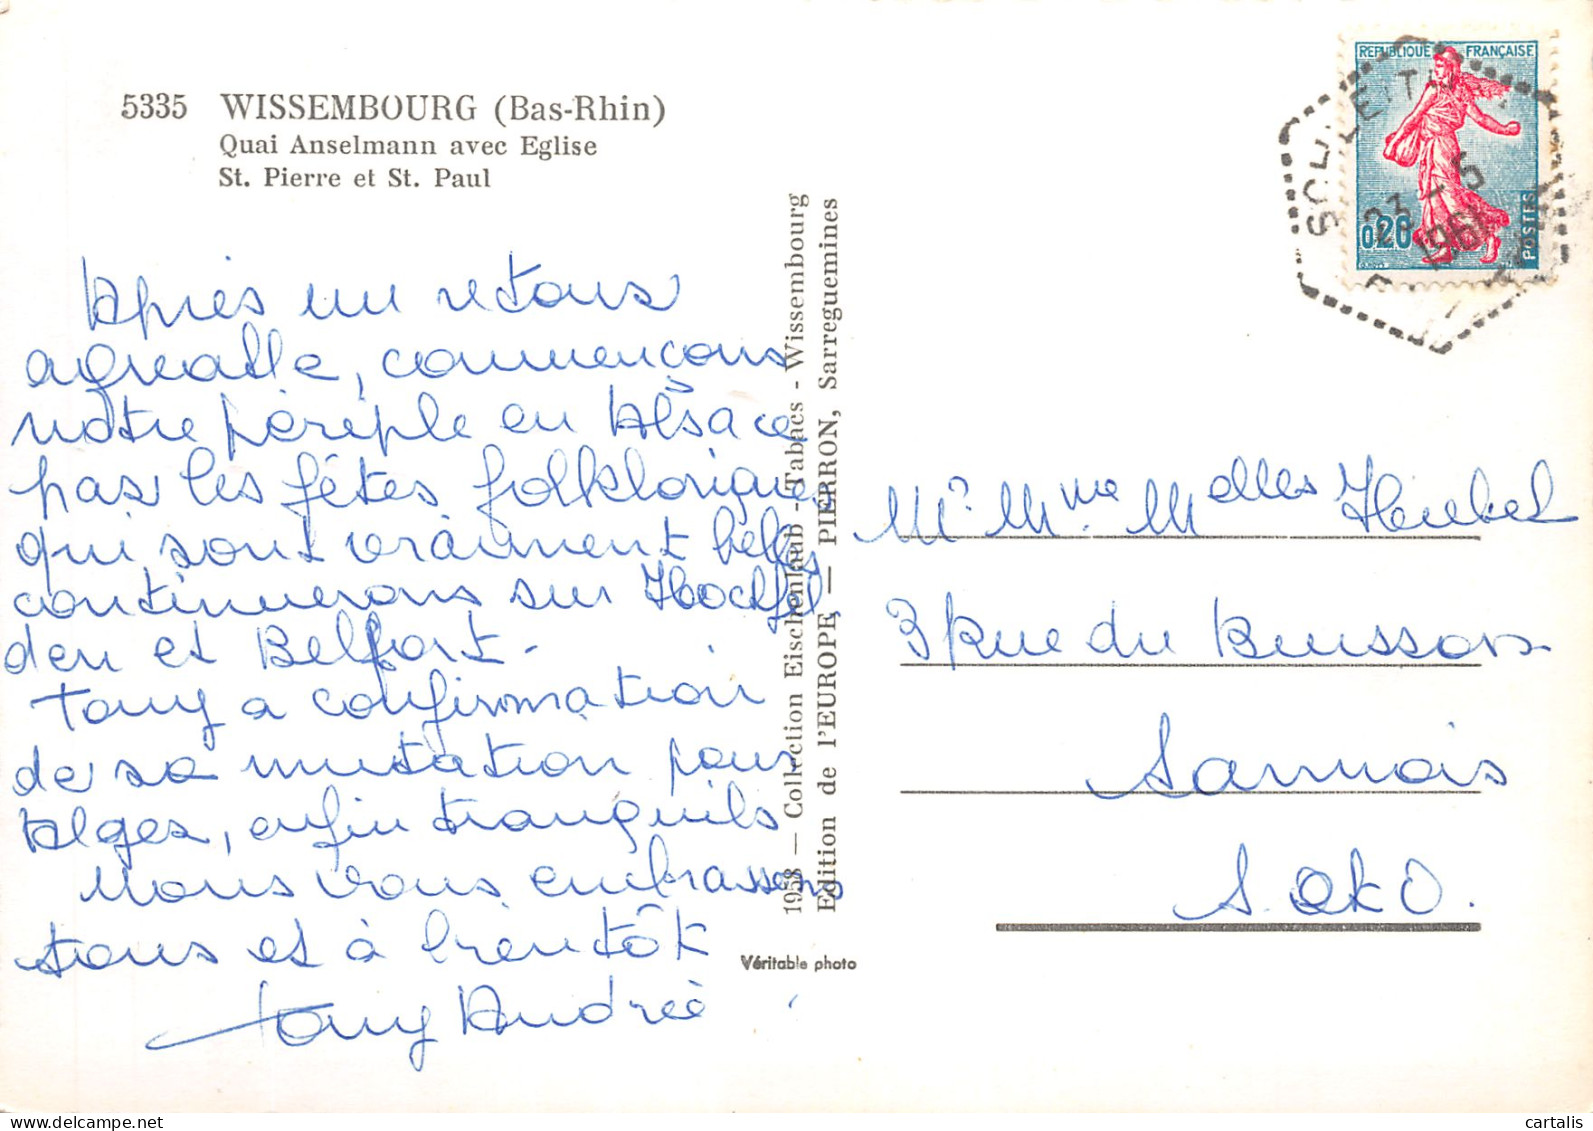 5335 WISSEMBOURG (Bas-Rhin)
Quai Anselmann avec Eglise
St. Pierre et St. Paul
Après un retour
agréable, commençons
notre périple en Alsace
par les fêtes folkloriques
qui sont vraiment belles
continuerons sur Hochfel
den et Belfort.
Tony a confirmation
de sa mutation pour
Alger, enfin tranquils
Nous vous embrassons
tous et à bientôt
Tony Andrée
1958 — Collection Eischenlaub - Tabacs - Wissembourg
Edition de l'EUROPE, — PIERRON, Sarreguemines
Véritable photo
REPUBLIQUE FRANÇAISE
0,20
POSTES
23 - 5
1961
Mr. Mme Melles Heubel
3 Rue du Buisson
Sannois
S. et O.
cartalis
www.delcampe.net